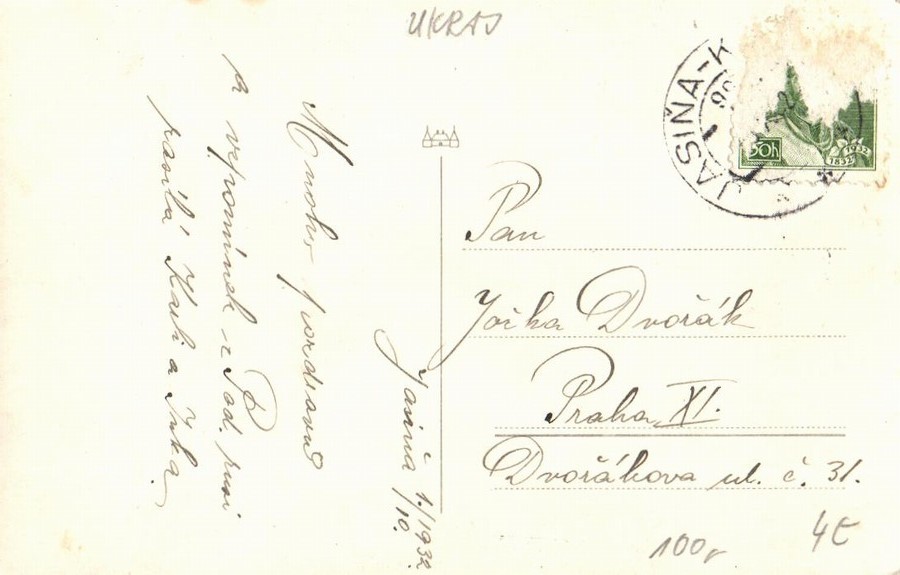 UKRAJ
JASIŇA-K
50h
1832 1932
Mnoho pozdravů
a vzpomínek z Pod. Rusi
posílá Karli a Inka
Jasiňa 1./10. 1932.
Pan
Jožka Dvořák
Praha XI.
Dvořákova ul. č. 31.
100,-
4E